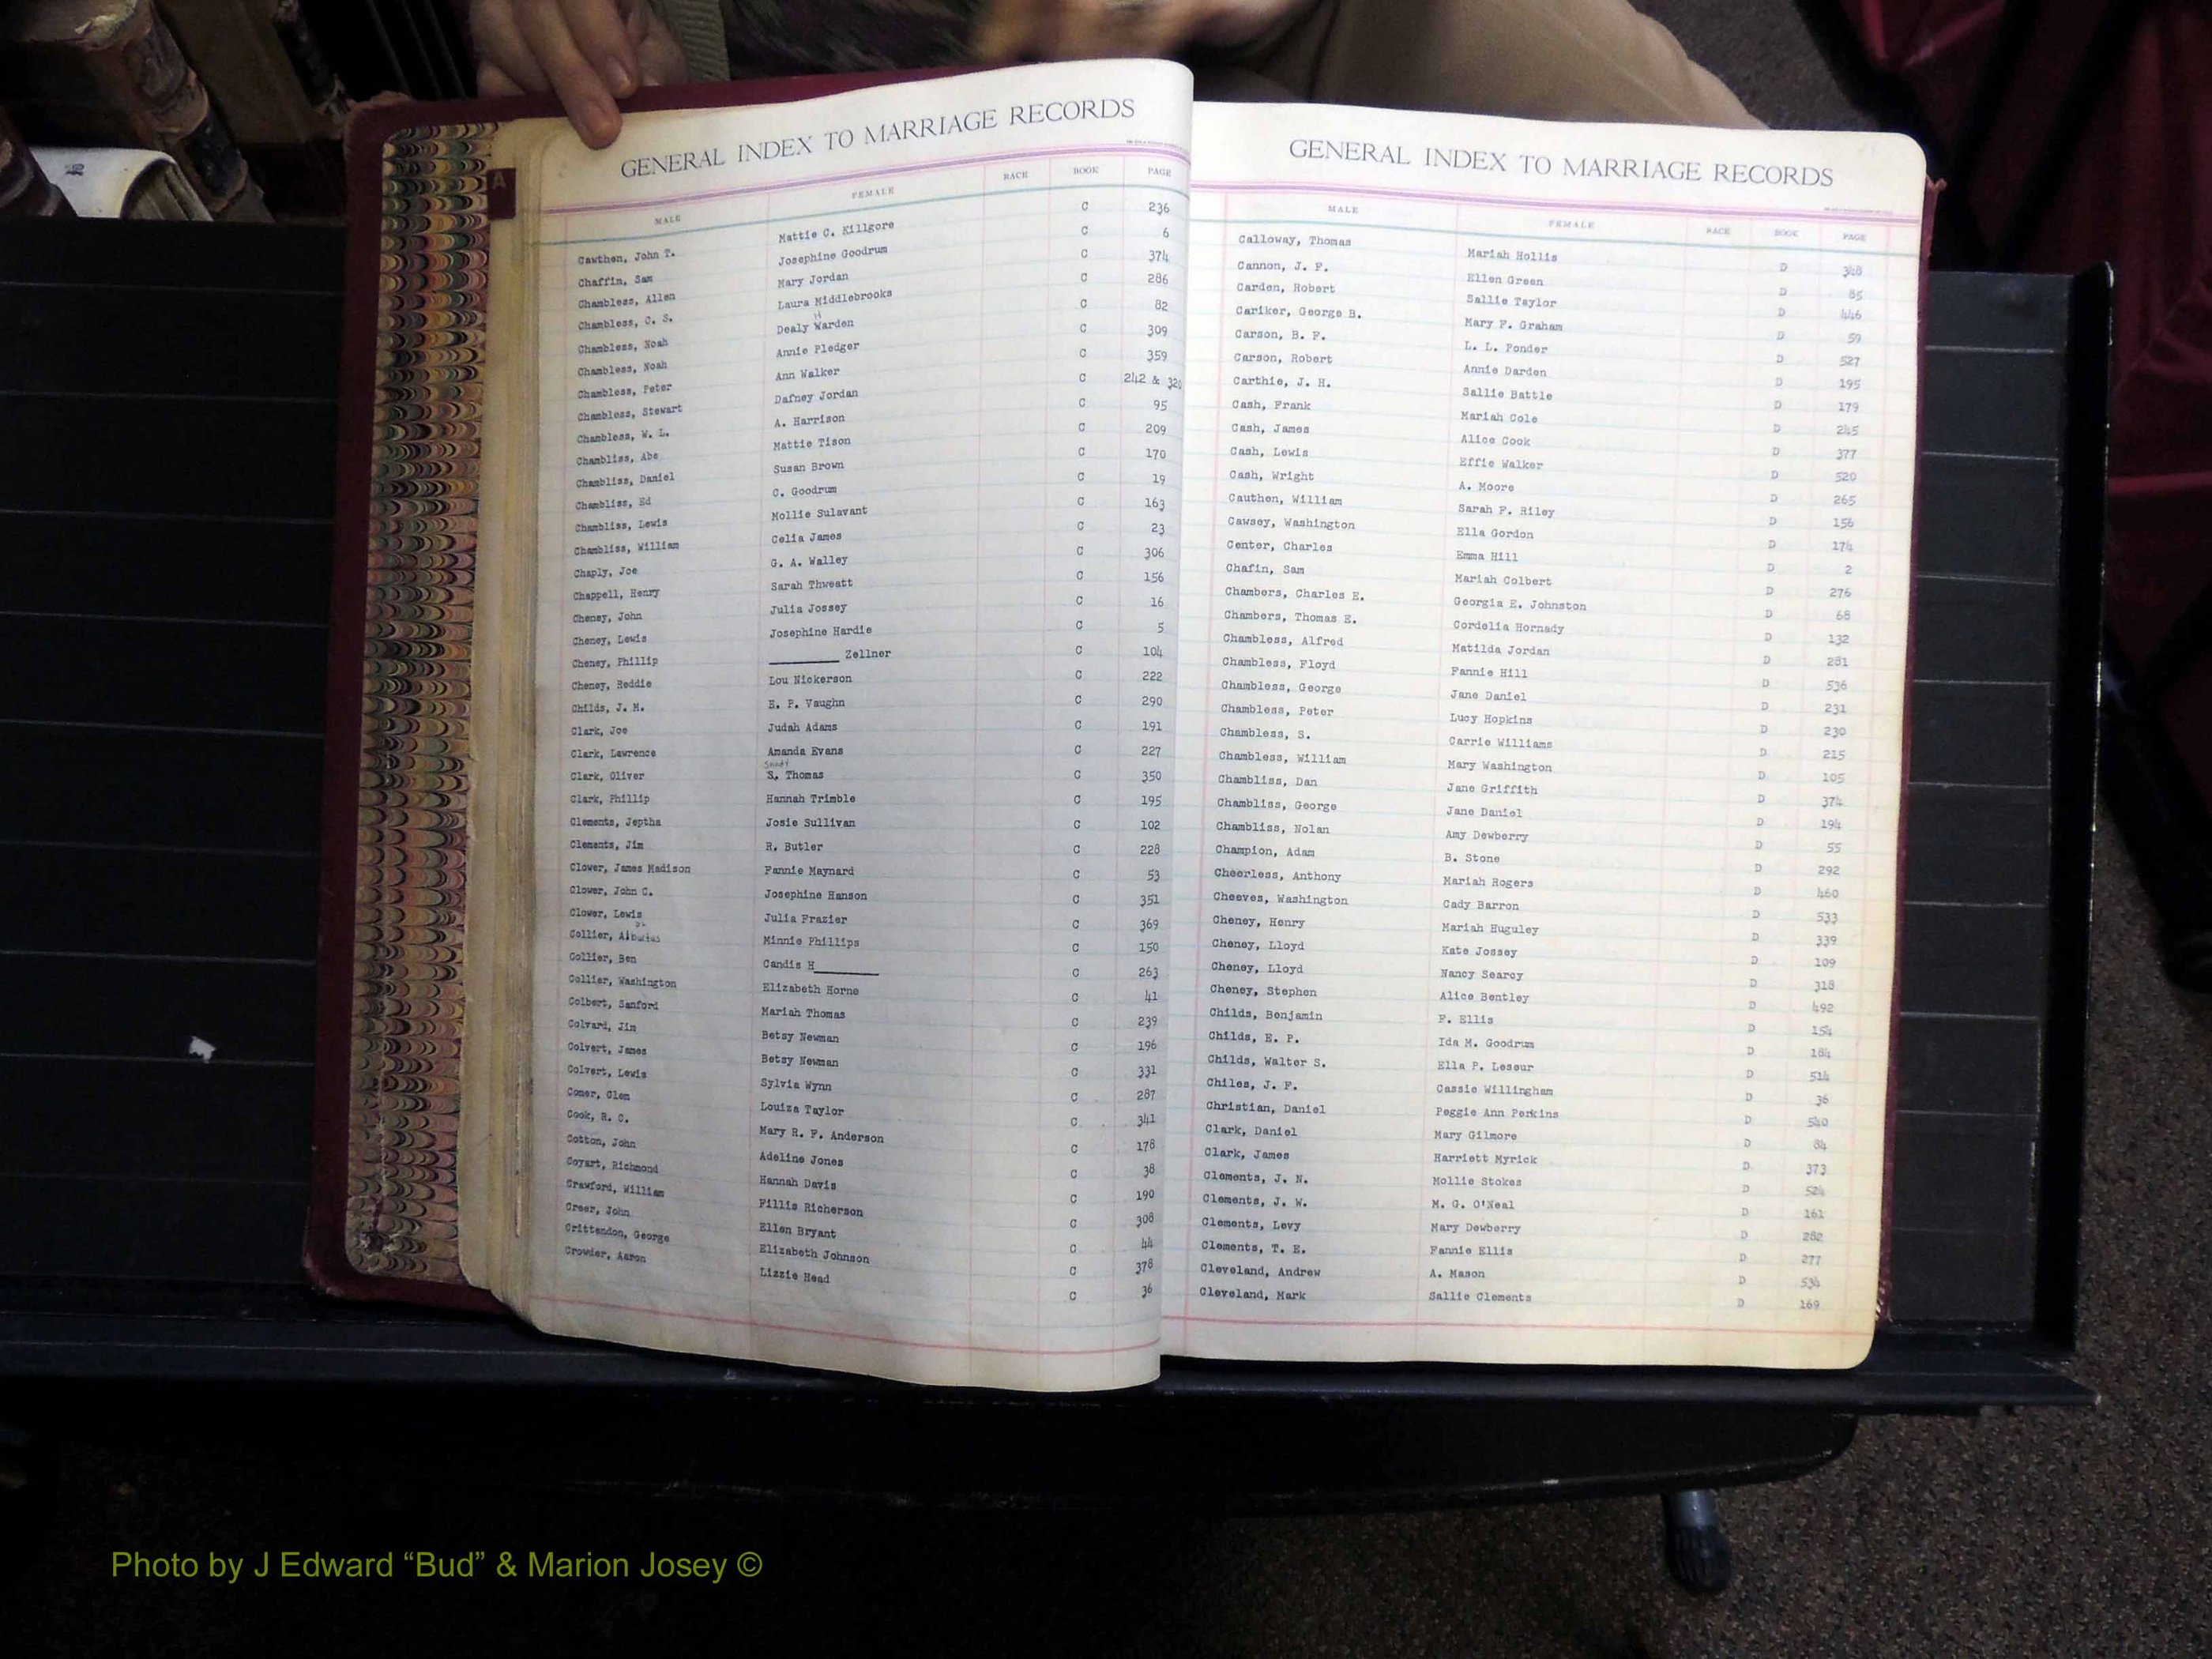 GENERAL INDEX TO MARRIAGE RECORDS
MALE FEMALE RACE BOOK PAGE
Cawthon, John T. Mattie C. Killgore C 236
Chaffin, Sam Josephine Goodrum C 6
Chambless, Allen Mary Jordan C 374
Chambless, C. S. Laura Middlebrooks C 286
Chambless, Noah Dealy Warden C 82
Chambless, Noah Annie Pledger C 309
Chambless, Peter Ann Walker C 359
Chambless, Stewart Dafney Jordan C 242 & 320
Chambless, W. L. A. Harrison C 95
Chambliss, Abe Mattie Tison C 209
Chambliss, Daniel Susan Brown C 170
Chambliss, Ed C. Goodrum C 19
Chambliss, Lewis Mollie Sulavant C 163
Chambliss, William Celia James C 23
Chaply, Joe G. A. Walley C 306
Chappell, Henry Sarah Thweatt C 156
Cheney, John Julia Jossey C 16
Cheney, Lewis Josephine Hardie C 5
Cheney, Phillip ________ Zellner C 104
Cheney, Reddie Lou Nickerson C 222
Childs, J. M. E. P. Vaughn C 290
Clark, Joe Judah Adams C 191
Clark, Lawrence Amanda Evans C 227
Clark, Oliver S. Thomas C 350
Clark, Phillip Hannah Trimble C 195
Clements, Jeptha Josie Sullivan C 102
Clements, Jim R. Butler C 228
Clower, James Madison Fannie Maynard C 53
Clower, John C. Josephine Hanson C 351
Clower, Lewis Julia Frazier C 369
Collier, Minnie Phillips C 150
Collier, Ben Candis H________ C 263
Collier, Washington Elizabeth Horne C 41
Colbert, Sanford Mariah Thomas C 239
Colvard, Jim Betsy Newman C 196
Colvert, James Betsy Newman C 331
Colvert, Lewis Sylvia Wynn C 287
Comer, Clem Louiza Taylor C 341
Cook, R. C. Mary R. F. Anderson C 178
Cotton, John Adeline Jones C 38
Coyart, Richmond Hannah Davis C 190
Crawford, William Fillis Richerson C 308
Creer, John Ellen Bryant C 44
Crittendon, George Elizabeth Johnson C 378
Crowder, Aaron Lizzie Head C 36
GENERAL INDEX TO MARRIAGE RECORDS
MALE FEMALE RACE BOOK PAGE
Calloway, Thomas Mariah Hollis D 348
Cannon, J. F. Ellen Green D 85
Carden, Robert Sallie Taylor D 446
Cariker, George B. Mary F. Graham D 59
Carson, B. F. L. L. Ponder D 527
Carson, Robert Annie Darden D 195
Carthie, J. H. Sallie Battle D 179
Cash, Frank Mariah Cole D 245
Cash, James Alice Cook D 377
Cash, Lewis Effie Walker D 520
Cash, Wright A. Moore D 265
Cauthen, William Sarah F. Riley D 156
Cawsey, Washington Ella Gordon D 174
Center, Charles Emma Hill D 2
Chafin, Sam Mariah Colbert D 276
Chambers, Charles E. Georgia E. Johnston D 68
Chambers, Thomas E. Cordelia Hornady D 132
Chambless, Alfred Matilda Jordan D 281
Chambless, Floyd Fannie Hill D 536
Chambless, George Jane Daniel D 231
Chambless, Peter Lucy Hopkins D 230
Chambless, S. Carrie Williams D 215
Chambless, William Mary Washington D 105
Chambliss, Dan Jane Griffith D 374
Chambliss, George Jane Daniel D 194
Chambliss, Nolan Amy Dewberry D 55
Champion, Adam B. Stone D 292
Cheerless, Anthony Mariah Rogers D 460
Cheeves, Washington Cady Barron D 533
Cheney, Henry Mariah Huguley D 339
Cheney, Lloyd Kate Jossey D 109
Cheney, Lloyd Nancy Searcy D 318
Cheney, Stephen Alice Bentley D 492
Childs, Benjamin F. Ellis D 154
Childs, E. P. Ida M. Goodrum D 184
Childs, Walter S. Ella P. Leseur D 514
Chiles, J. F. Cassie Willingham D 36
Christian, Daniel Peggie Ann Perkins D 540
Clark, Daniel Mary Gilmore D 84
Clark, James Harriett Myrick D 373
Clements, J. N. Mollie Stokes D 524
Clements, J. W. M. G. O'Neal D 161
Clements, Levy Mary Dewberry D 282
Clements, T. E. Fannie Ellis D 277
Cleveland, Andrew A. Mason D 534
Cleveland, Mark Sallie Clements D 169
Photo by J Edward “Bud” & Marion Josey ©